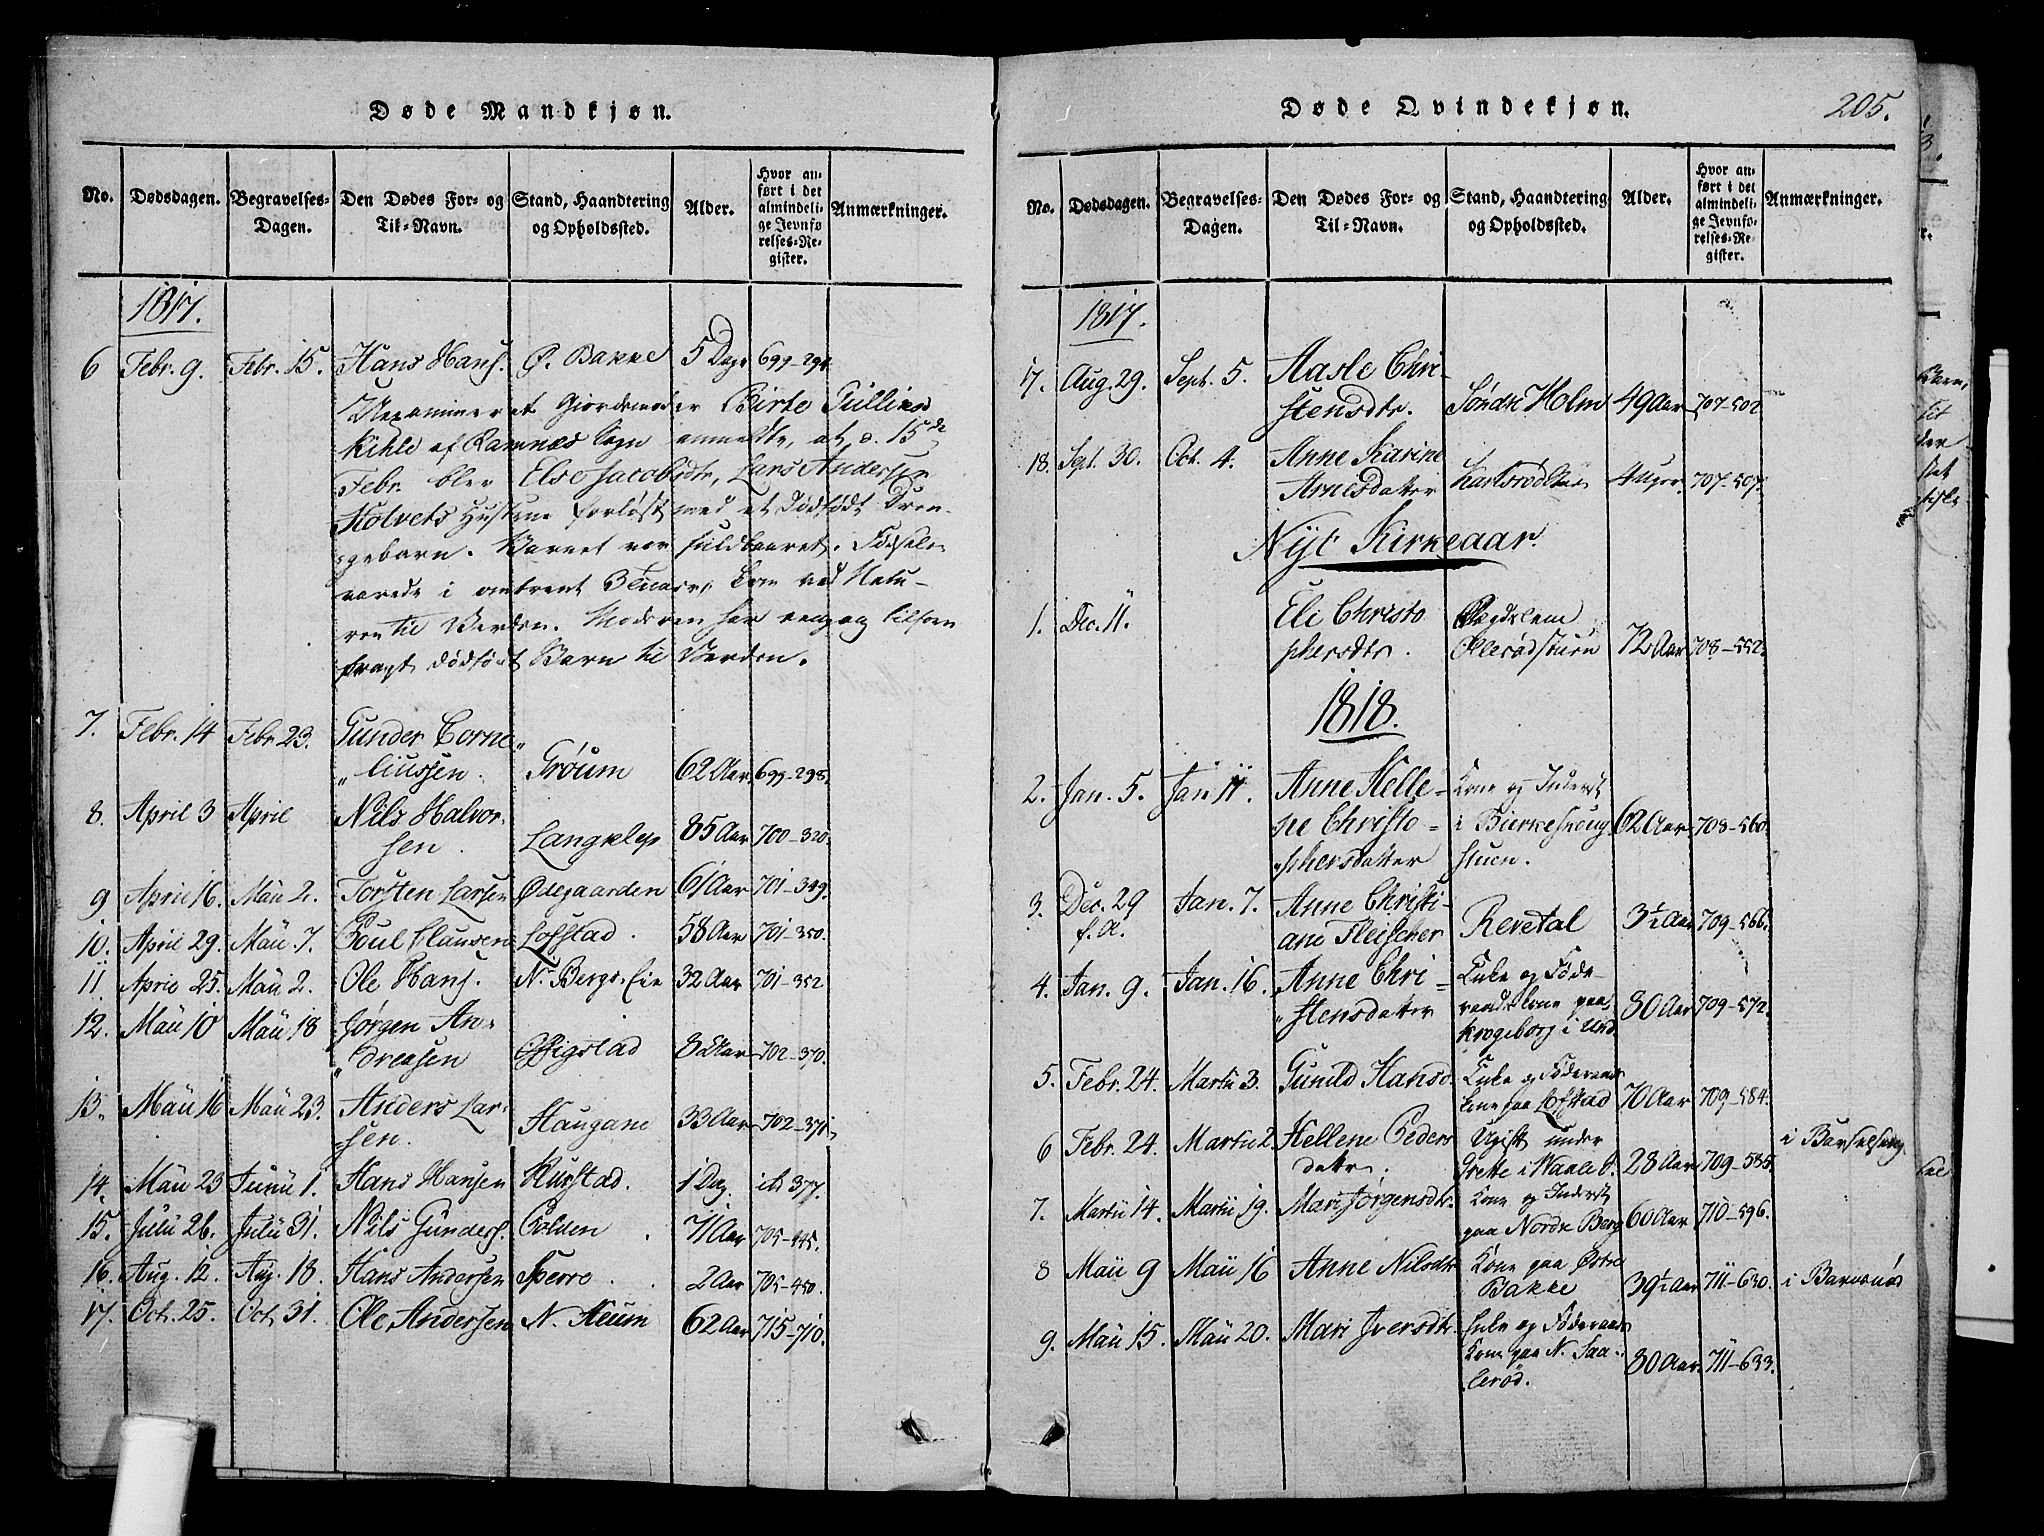 Døde Mandkjøn.
No. Dødsdagen. Begravelses-Dagen. Den Dødes For- og Til-Navn. Stand, Haandtering og Opholdssted. Alder. Hvor anført i det almindelige Jevnførelses-Register. Anmærkninger.
1817.
6 Febr. 9. Febr. 15. Hans Hans. Ø. Bakke 5 Dage 699-294
Uexamineret Giordemoder Birte Gullics
Kihle af Ramnæs Sogn anmeldte, at d. 15de
Febr. blev Else Jacobsdtr, Lars Andersen
Kolvets Hustrue forløst med et dødfødt Dren-
gebarn. Barnet var fuldbaaret. Fødselen
varede i omtrent 3 Timer, kom ved Natu-
ren til Verden. Moderen har engang tilforn
bragt dødfødt Barn til Verden.
7. Febr. 14 Febr 23. Gunder Corne„
„liussen. Trøum 62 Aar 699-298.
8. April 3 April Nils Halvor-
sen. Langkleps 85 Aar 700-320.
9 April 16. Maii 2. Torsten Larsen Ødegaarden 61 Aar 701-349.
10. April 29. Maii 7. Poul Clausen Lofstad. 58 Aar 701-350.
11 April 25. Maii 2. Ole Hans. N. Bergs. Eie 32 Aar 701-352
12. Maii 10 Maii 18 Jørgen An-
„dreasen Offigstad 82 Aar 702-370.
13. Maii 16 Maii 23. Anders Lar-
sen. Haugane 33 Aar 702-371.
14. Maii 23 Junii 1. Hans Hansen Rustad. 1 Dag. ib 377.
15. Julii 26. Julii 31. Nils Gunders. Bolden. 71 Aar 705-445.
16. Aug. 12. Aug. 18. Hans Andersen Sperre. 2 Aar 705-450.
17. Oct. 25. Oct. 31. Ole Andersen N. Aeum 62 Aar 715-710.
Døde Qvindekjøn. 205.
No. Dødsdagen. Begravelses-Dagen. Den Dødes For- og Til-Navn. Stand, Haandtering og Opholdssted. Alder. Hvor anført i det almindelige Jevnførelses-Register. Anmærkninger.
1817.
17. Aug. 29. Sept. 5. Aasle Chri-
stensdtr. Søndre Holm 49 Aar 707-502
18. Sept. 30. Oct. 4. Anne Karine
Arnesdatter 4 Uger. 707-507.
Nyt Kirkeaar.
1. Dec. 11. Eli Christo
phersdtr. Lægdslem
Ollerødstuen 72 Aar 708-552.
1818.
2. Jan. 5. Jan 11. Anne Helle-
ne Christo-
„phersdatter Kone og Inderst
i Bierkeskoug
stuen. 62 Aar 708-560.
3. Dec. 29
f. A. Jan. 7. Anne Christi-
ane Fleischer Revetal 3½ Aar 709-566.
4. Jan. 9. Jan. 16. Anne Chri-
„stensdatter Enke og Føde-
raadskone paa
Krogeborg i Und. 80 Aar 709-572.
5. Febr. 24. Martii 3. Gunild Hansd. Enke og Føderaads
kone paa Lofstad 70 Aar 709-584.
6 Febr. 24. Martii 2. Hellene Peders
datter. Ugift under
Grette i Vaale P. 28 Aar 709-585. i Barselseng
7. Martii 14. Martii 19. Mari Jørgensdtr. Kone og Inderst
paa Nordre Berg 60 Aar 710-596.
8 Maii 9 Maii 16 Anne Nilsdtr Kone paa Østre
Bakke 39½ Aar 711-630. i Barnsnød
9. Maii 15. Maii 20. Mari Iversdtr. Enke og Føderaads
Kone paa N. Saa-
lerød. 80 Aar. 711-633.